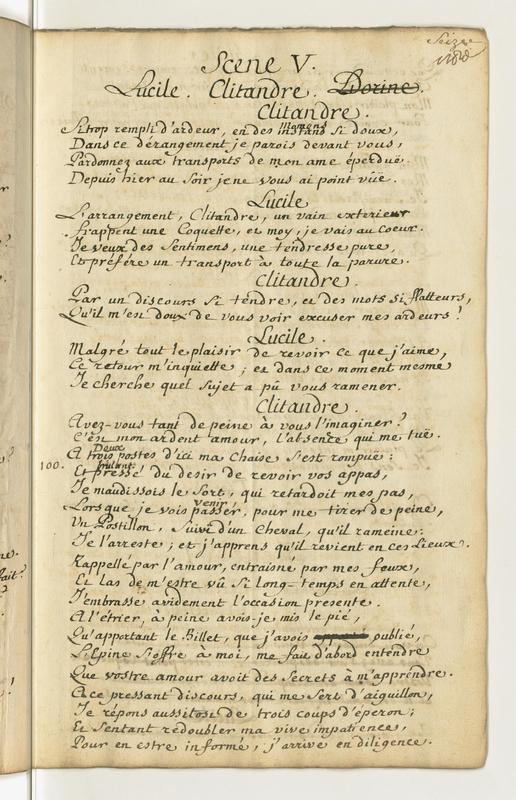 Seize
Scene V.
Lucile. Clitandre. Dorine.
Clitandre.
Si trop rempli d'ardeur, en des instans si doux,
momens
Dans ce dérangement je parois devant vous,
Pardonnez aux transports de mon ame éperduë.
Depuis hier au Soir je ne vous ai point vüe.
Lucile
L'arrangement, Clitandre, un vain exterieur
frappent une Coquette, et moy, je vais au Coeur.
Je veux des Sentimens, une tendresse pure,
Et préfére un transport à toute la parure.
Clitandre.
Par un discours si tendre, et des mots si flatteurs,
Qu'il m'est doux de vous voir excuser mes ardeurs!
Lucile.
Malgré tout le plaisir de revoir ce que j'aime,
Ce retour m'inquiette; et dans ce moment mesme
Je cherche quel Sujet a pû vous ramener.
Clitandre.
Avez-vous tant de peine à vous l'imaginer?
C'est mon ardent amour, l'absence qui me tuë.
Deux
A trois postes d'ici ma Chaise s'est rompuë:
brulant
100. Et pressé du desir de revoir vos appas,
Je maudissois le Sort, qui retardoit mes pas,
venir
Lorsque je vois passer, pour me tirer de peine,
Un Postillon, Suivi d'un Cheval, qu'il rameine.
Je l'arreste; et j'apprens qu'il revient en ces Lieux.
Rappellé par l'amour, entraisné par mes feux,
Et las de m'estre vû si long-temps en attente,
J'embrasse avidement l'occasion presente.
A l'étrier, à peine avois-je mis le pié,
Qu'apportant le Billet, que j'avois publié,
L'Epine s'offre à moi, me fait d'abord entendre
Que vostre amour avoit des Secrets à m'apprendre.
A ce pressant discours, qui me Sert d'aiguillon,
Je répons aussitost de trois coups d'éperon;
Et Sentant redoubler ma vive impatience,
Pour en estre informé, j'arrive en diligence.